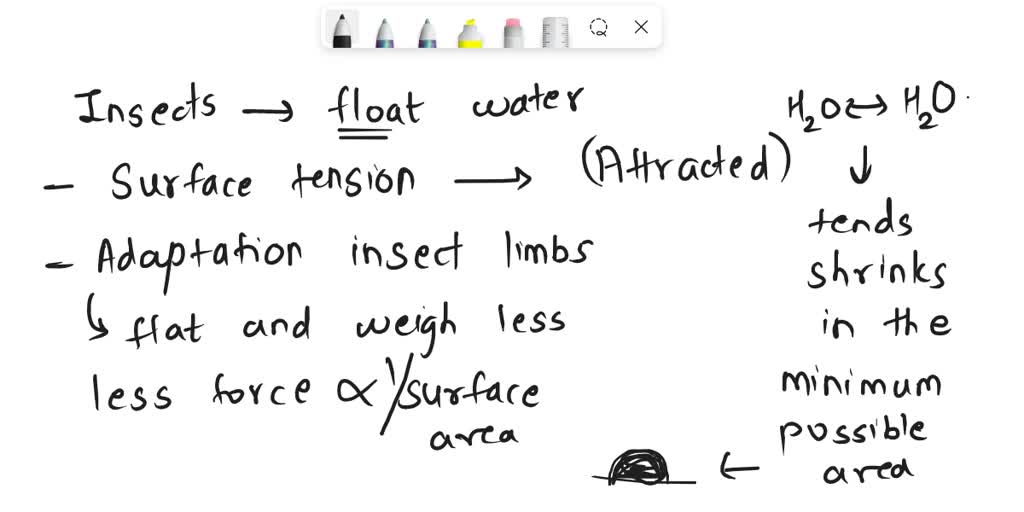 Insects → float water
- Surface tension → (Attracted)
- Adaptation insect limbs
↳ flat and weigh less
less force ∝ 1/surface
area
H₂O ↔ H₂O
↓
tends
shrinks
in the
minimum
possible
area
←